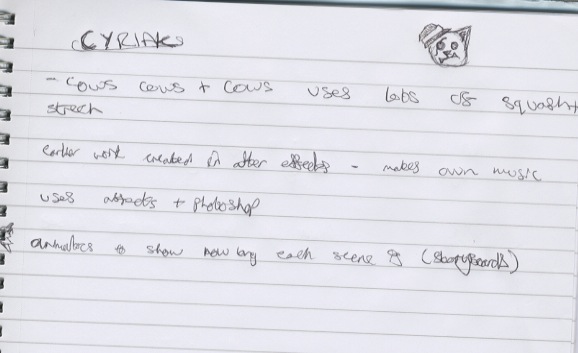 CYRIAK
- cows cows + cows uses lots of squash +
strech
earlier work created in after effects - makes own music
uses aftereffects + photoshop
animatics to show how long each scene is (storyboards)